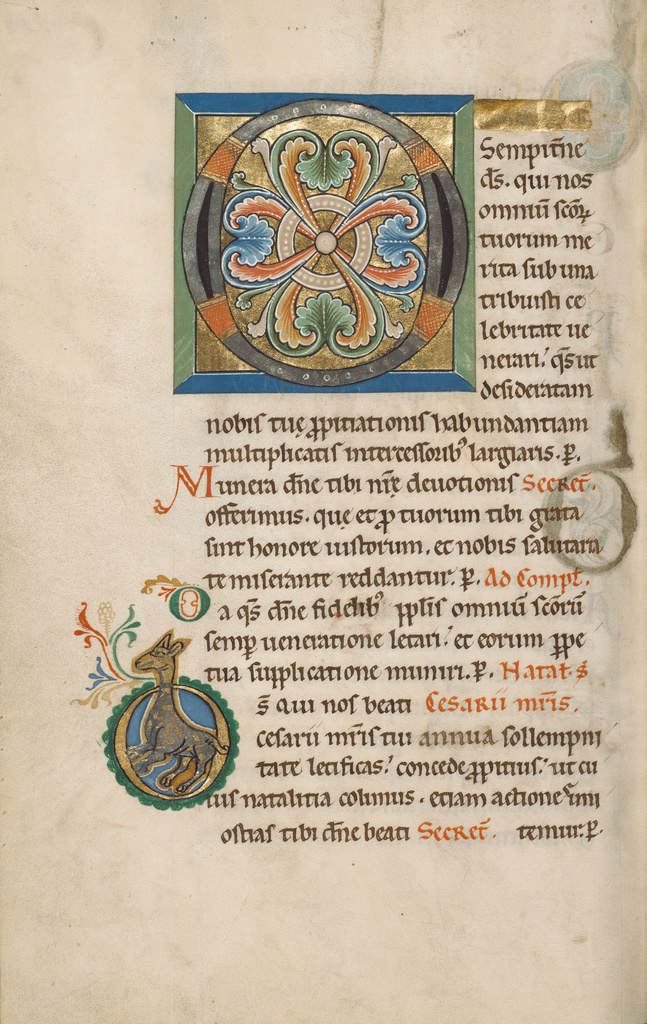 O
Sempit̄ne
d̄s. qui nos
omniū scōꝝ
tuorum me
rita sub una
tribuisti ce
lebritate ue
nerari. qs̄ ut
desideratam
nobis tuę ꝓpitiationis habundantiam
multiplicatis intercessorib᷒ largiaris. P̲.
Munera dn̄e tibi nr̄ę deuotionis Secret̄.
offerimus. quę et ꝓ tuorum tibi grata
sint honore iustorum. et nobis salutaria
te miserante reddantur. P̲. Ad Compl̄.
Da qs̄ dn̄e fidelib᷒ ppl̄is omniū scōrū
semꝑ ueneratione letari. et eorum ꝑpe
tua supplicatione muniri. P̲. Natal̄. s̄
D s̄ qui nos beati Cesarii mr̄is.
cesarii mr̄is tui annua sollempni
tate letificas. concede ꝓpitius. ut cu
ius natalitia colimus. etiam actiones imi
ostias tibi dn̄e beati Secret̄. temur. P̲.